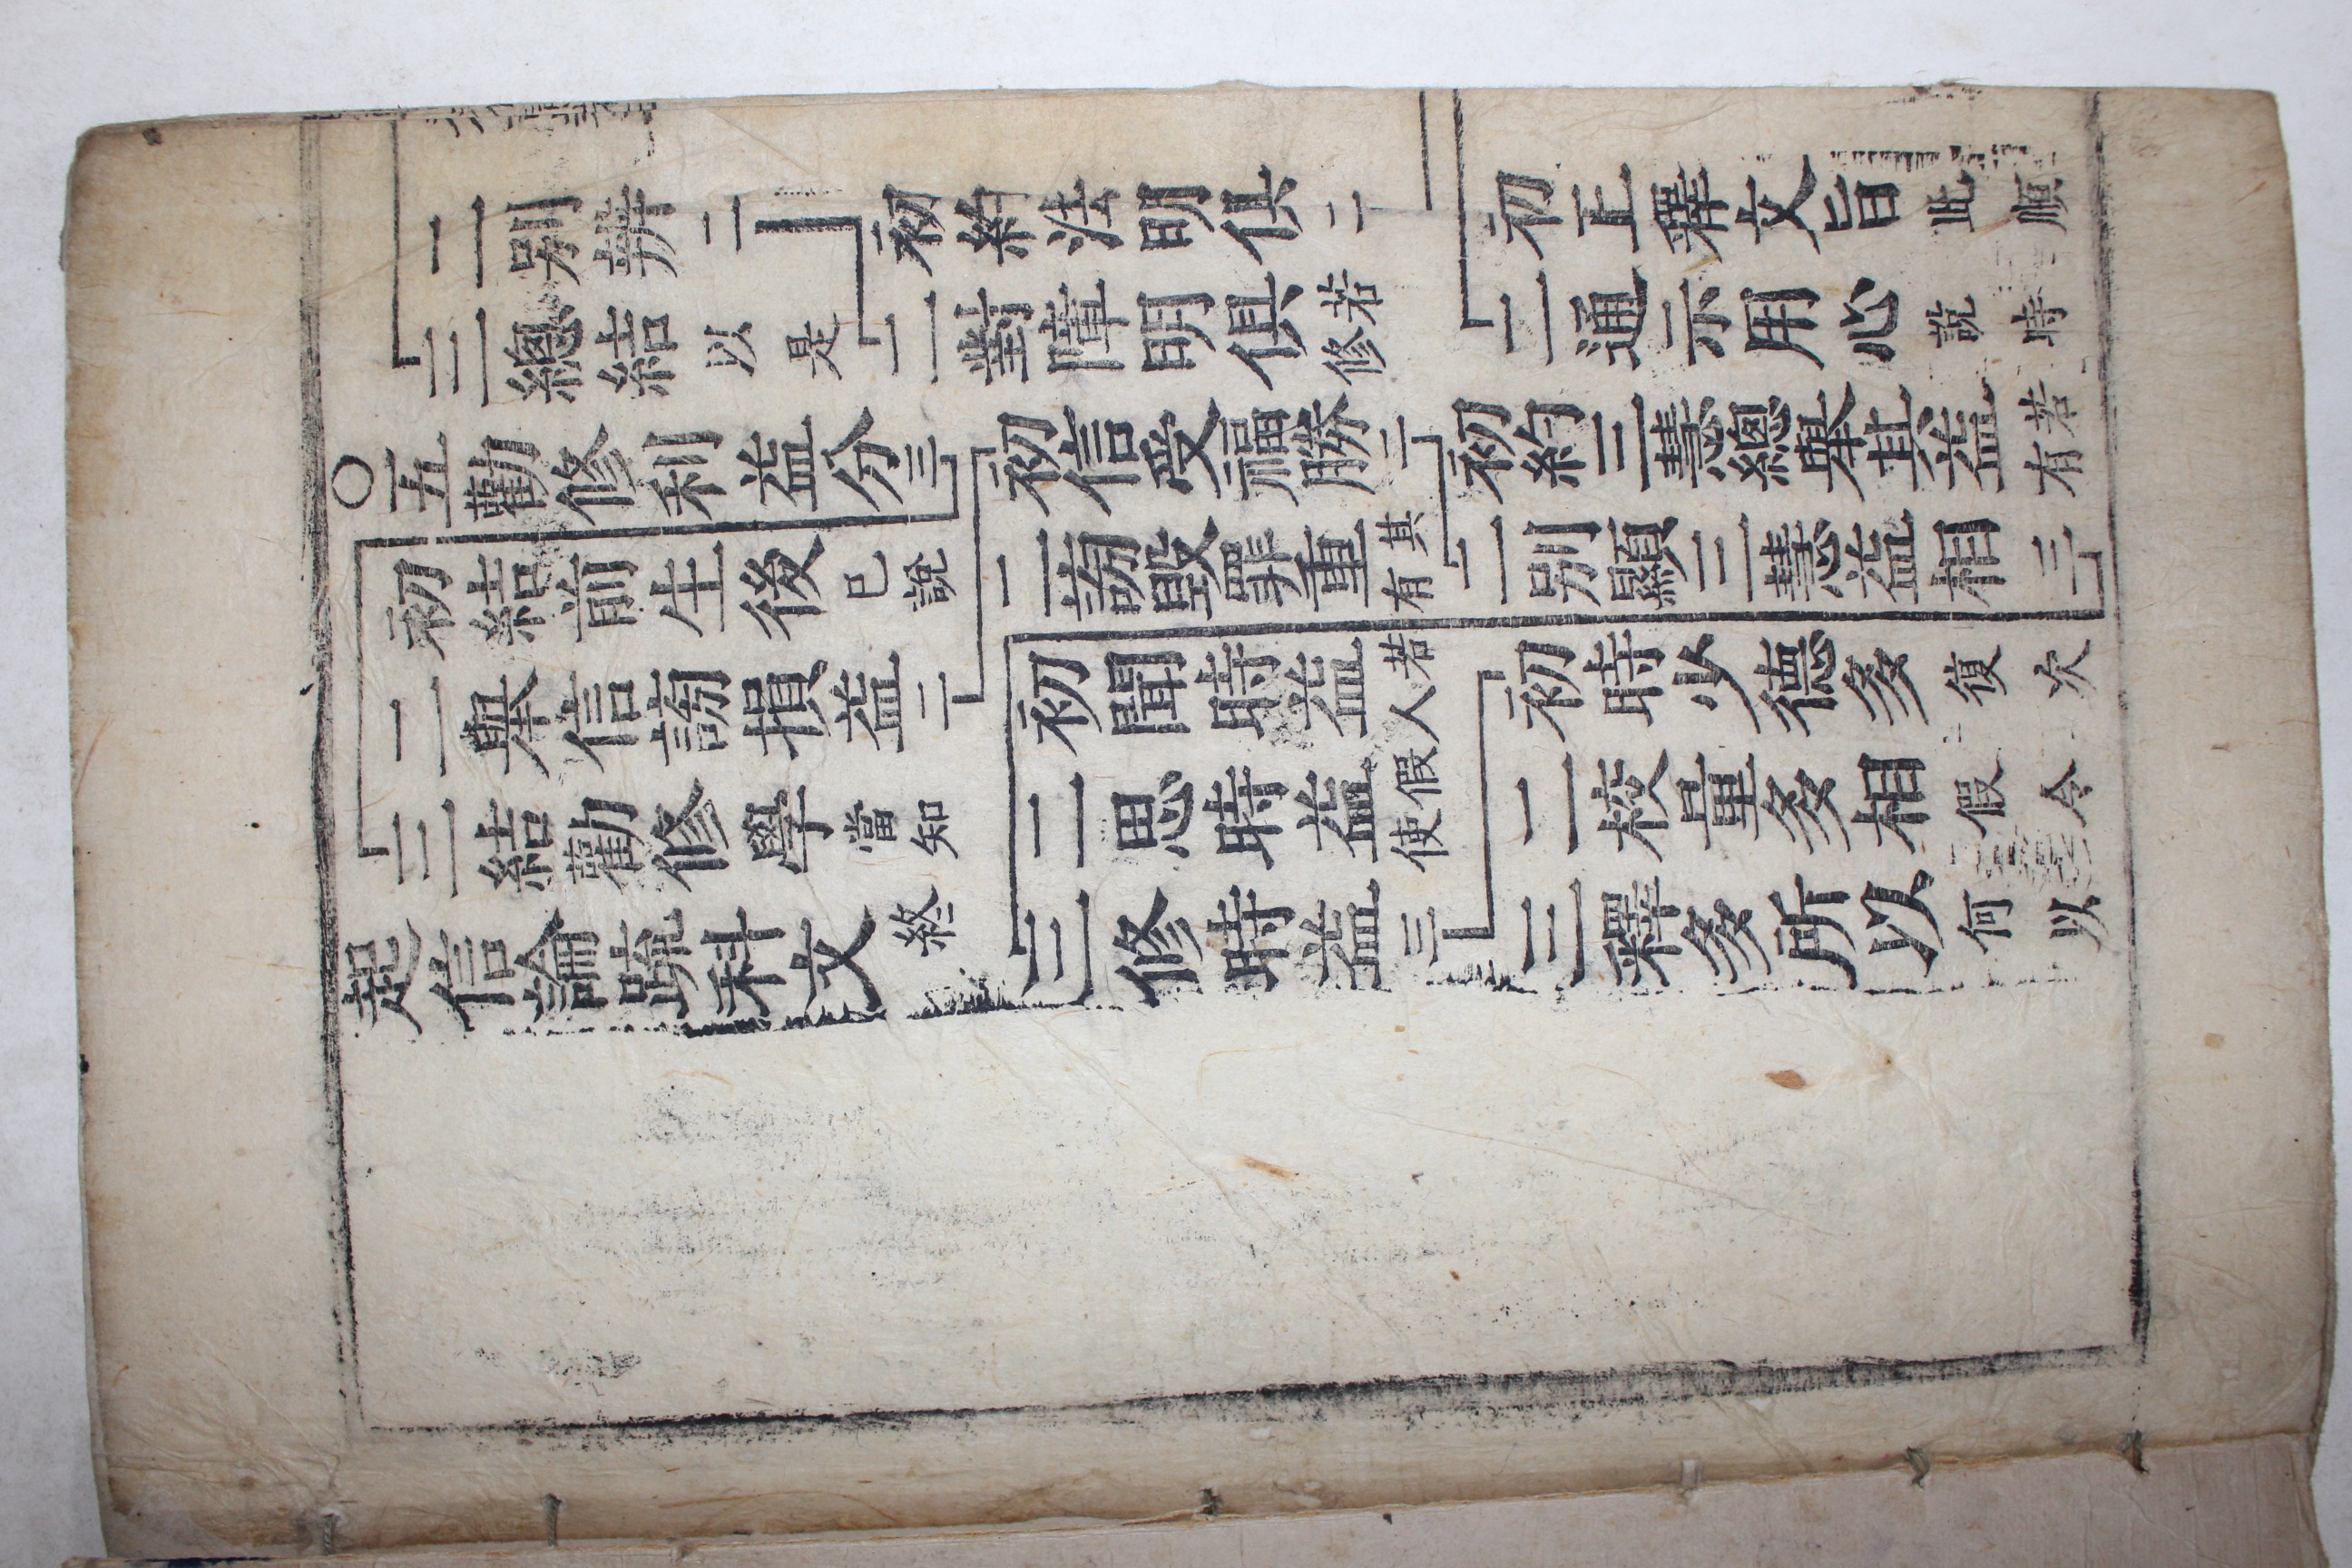 二別辨二 初約法明俱二 初正釋文旨此順
三總結以是 二對障明俱若修 二通示用心說時
○五勸修利益分三 初信受福勝二 初約三慧總舉其益若有
初結前生後已說 二謗毀罪重其有 二別顯三慧益相三
二舉信謗損益二 初聞時益若人 初時少德多復次
三結勸修學當知 二思時益假使 二校量多相假令
起信論䟽科文終 三修時益三 三釋多所以何以